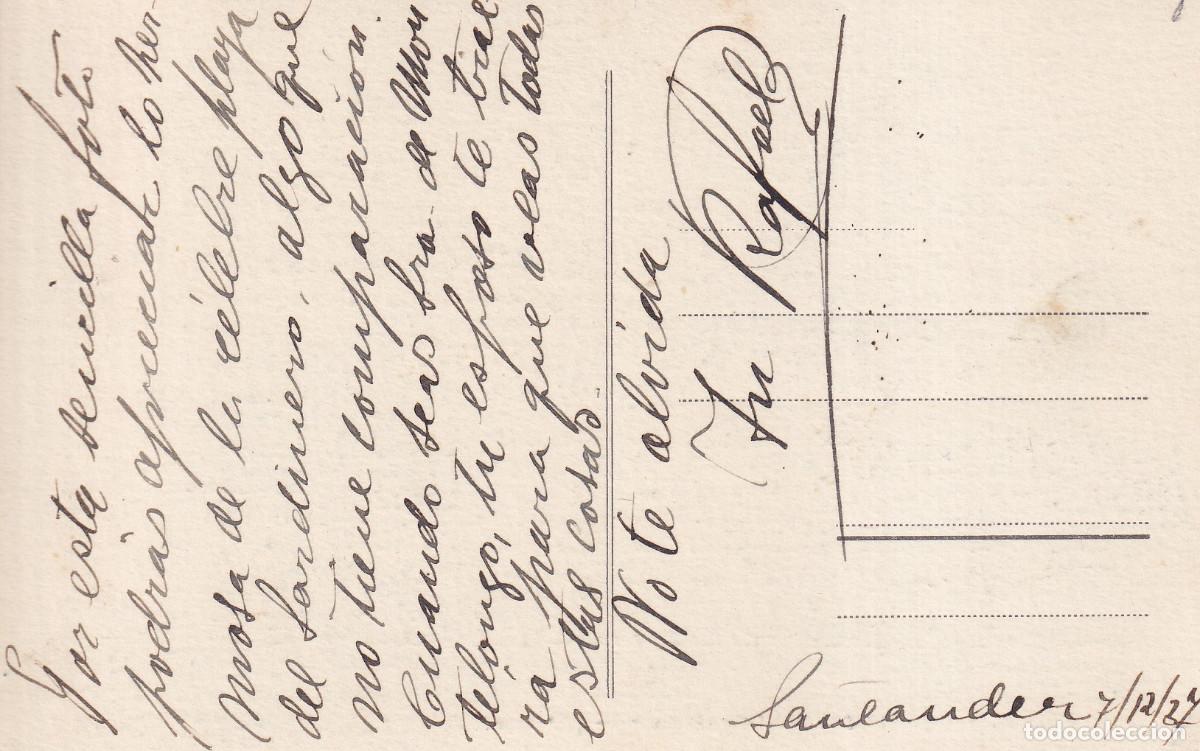 Por esta sencilla foto
podrás apreciar lo her-
mosa de la célebre playa
del Sardinero, algo que
no tiene comparación.
Cuando seas sra. de Mon
telongo, tu esposo te trae
ra para que veas todas
estas cosas.
No te olvida
Tu Rafael
Santander 7/12/37
todocoleccion